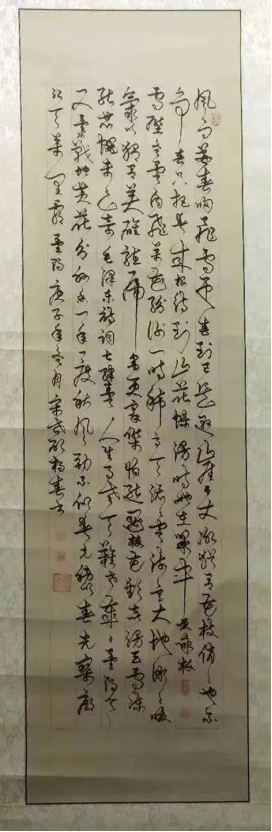 风雨送春归飞雪迎春到已是悬崖百丈冰犹有花枝俏俏也不
争春只把春来报待到山花烂漫时她在丛中笑 咏梅
雪压冬云白絮飞万花纷谢一时稀高天滚滚寒流急大地微微暖
气吹独有英雄驱虎豹更无豪杰怕熊罴梅花欢喜漫天雪冻
死苍蝇未足奇 毛泽东诗词七律 人生易老天难老岁岁重阳今
又重阳战地黄花分外香一年一度秋风劲不似春光胜似春光寥廓
江天万里霜 重阳 庚子年冬月